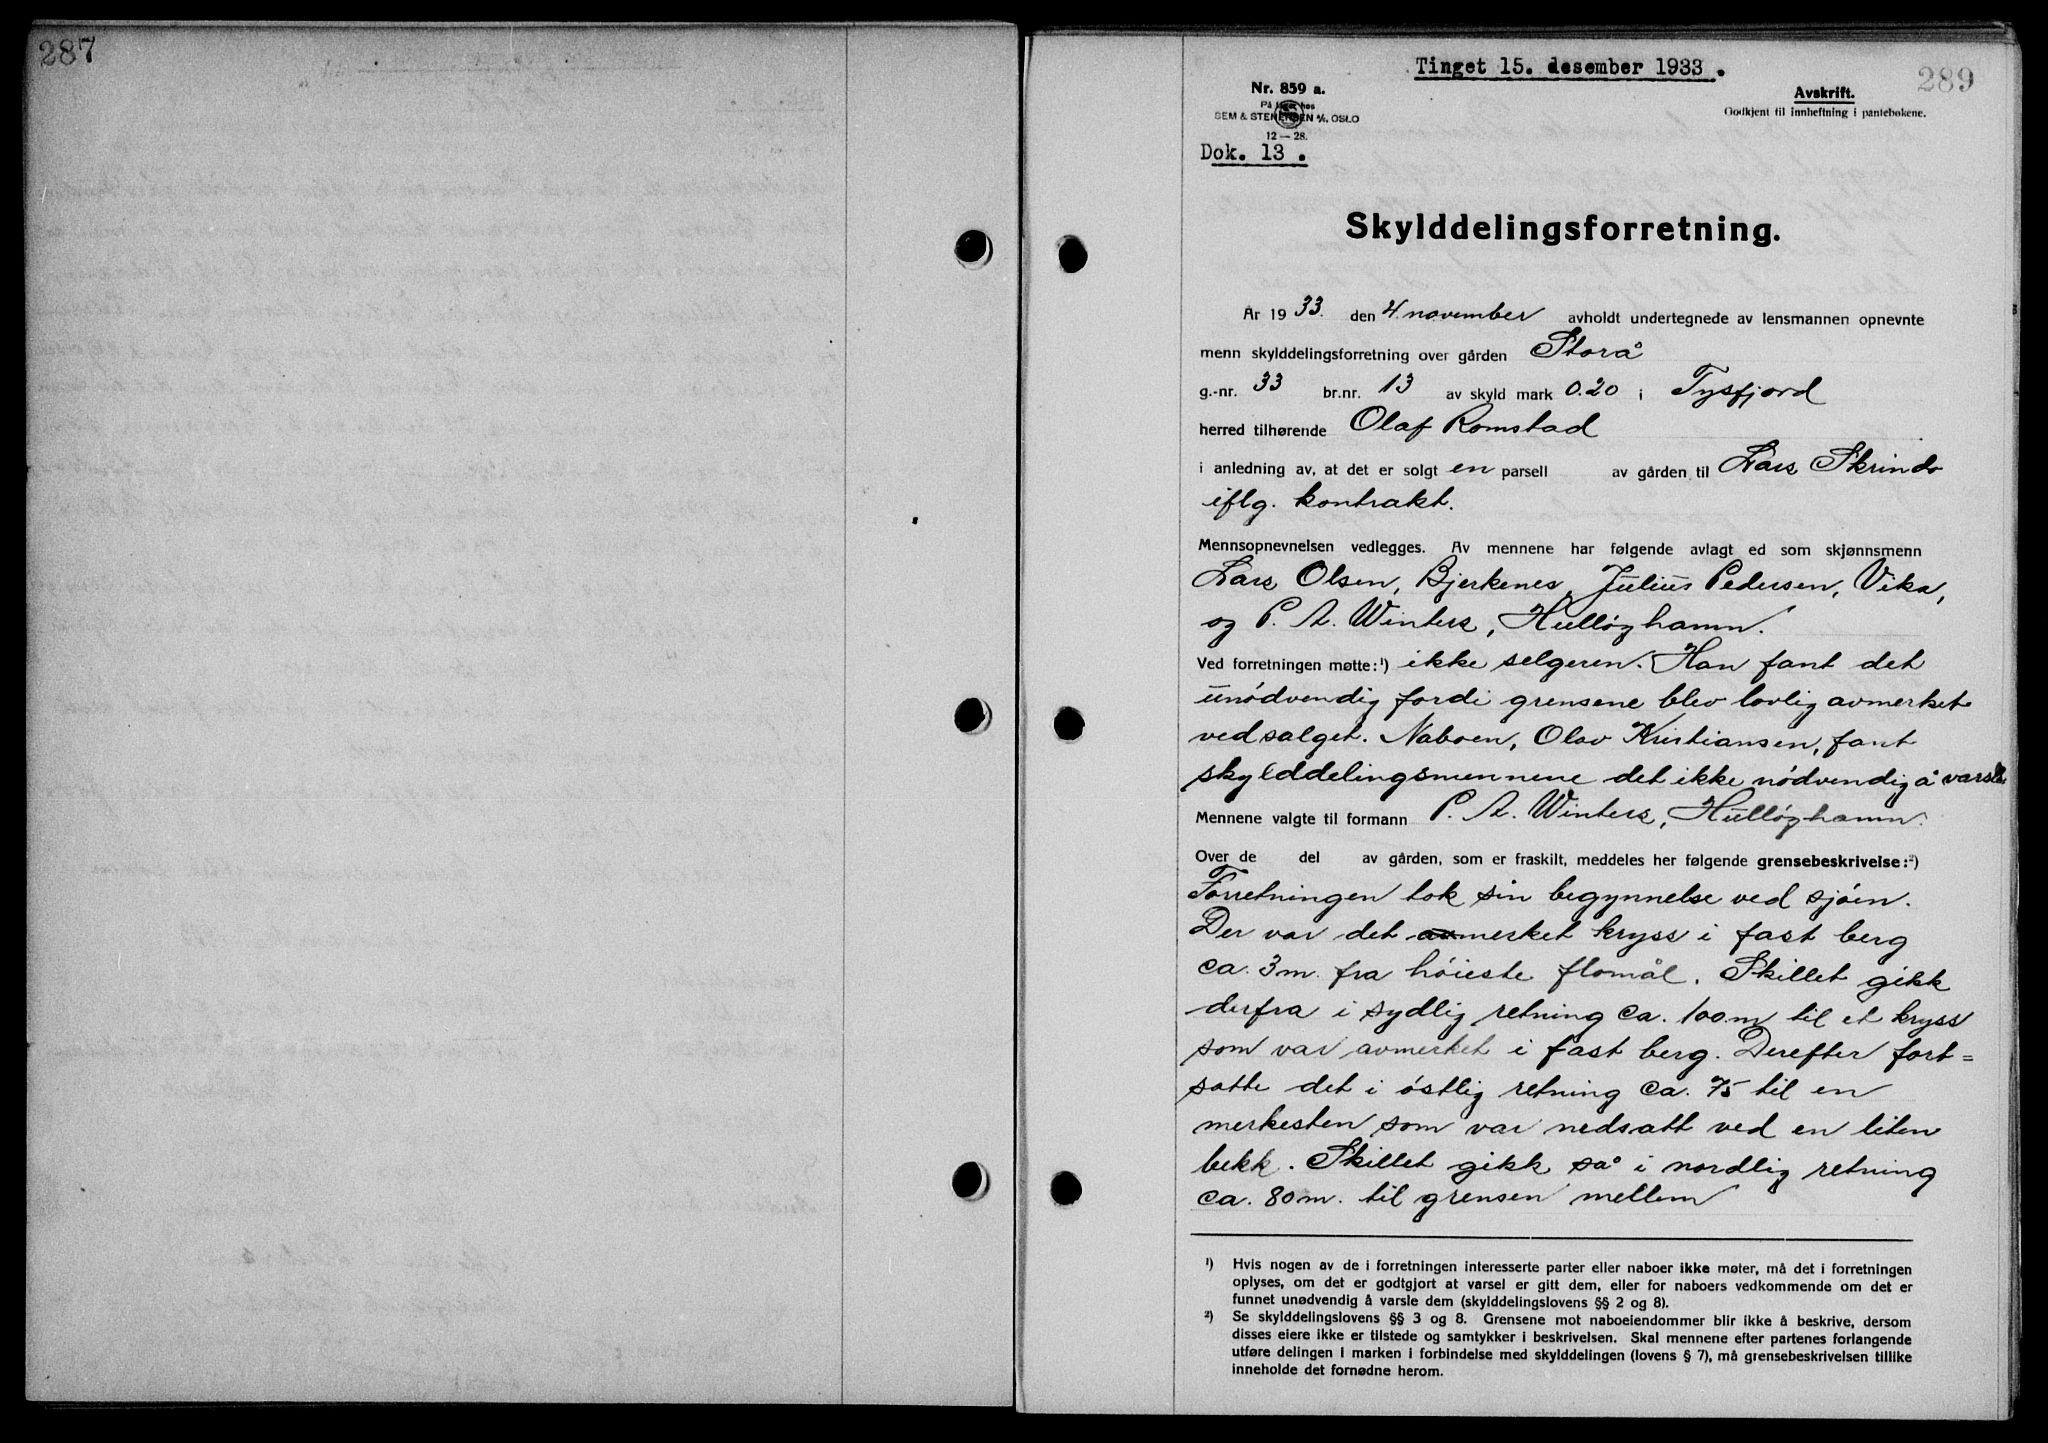 287
Tinget 15. desember 1933.
289
Nr. 859 a.
På lager hos
SEM & STENERSEN A/S. OSLO
12 — 28.
Avskrift.
Godkjent til innheftning i pantebøkene.
Dok. 13.
Skylddelingsforretning.
År 1933. den 4. november avholdt undertegnede av lensmannen opnevnte
menn skylddelingsforretning over gården Storå
g.-nr. 33 br.nr. 13 av skyld mark 0.20 i Tysfjord
herred tilhørende Olaf Romstad
i anledning av, at det er solgt en parsell av gården til Lars Skrindo
iflg. kontrakt.
Mennsopnevnelsen vedlegges. Av mennene har følgende avlagt ed som skjønnsmenn
Lars Olsen, Bjerkenes, Julius Pedersen, Vika,
og P. A. Winters, Hulløyhamn.
Ved forretningen møtte:¹) ikke selgeren. Han fant det
unödvendig fordi grensene blev lovlig avmerket
ved salget. Naboen, Olav Kristiansen, fant
skylddelingsmennene det ikke nödvendig å varsle
Mennene valgte til formann P. A. Winters, Hulløyhamn.
Over de del av gården, som er fraskilt, meddeles her følgende grensebeskrivelse:²)
Forretningen tok sin begynnelse ved sjöen.
Der var det avmerket kryss i fast berg
ca. 3 m. fra höieste flomål. Skillet gikk
derfra i sydlig retning ca. 100 m til et kryss
som var avmerket i fast berg. Derefter fort=
satte det i östlig retning ca. 75 til en
merkesten som var nedsatt ved en liten
bekk. Skillet gikk så i nordlig retning
ca. 80 m. til grensen mellem
¹) Hvis nogen av de i forretningen interesserte parter eller naboer ikke møter, må det i forretningen
oplyses, om det er godtgjort at varsel er gitt dem, eller for naboers vedkommende om det er
funnet unødvendig å varsle dem (skylddelingslovens §§ 2 og 8).
²) Se skylddelingslovens §§ 3 og 8. Grensene mot naboeiendommer blir ikke å beskrive, dersom
disses eiere ikke er tilstede og samtykker i beskrivelsen. Skal mennene efter partenes forlangende
utføre delingen i marken i forbindelse med skylddelingen (lovens § 7), må grensebeskrivelsen tillike
inneholde det fornødne herom.